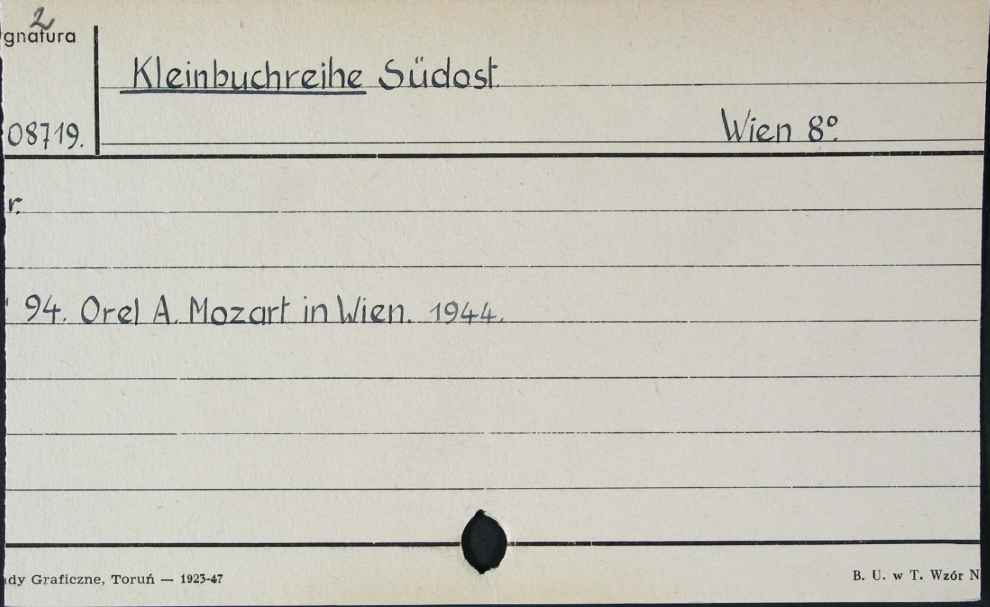 2
gnatura
Kleinbuchreihe Südost
08719.
Wien 8º.
r.
94. Orel A. Mozart in Wien. 1944.
dy Graficzne, Toruń — 1923-47
B. U. w T. Wzór N